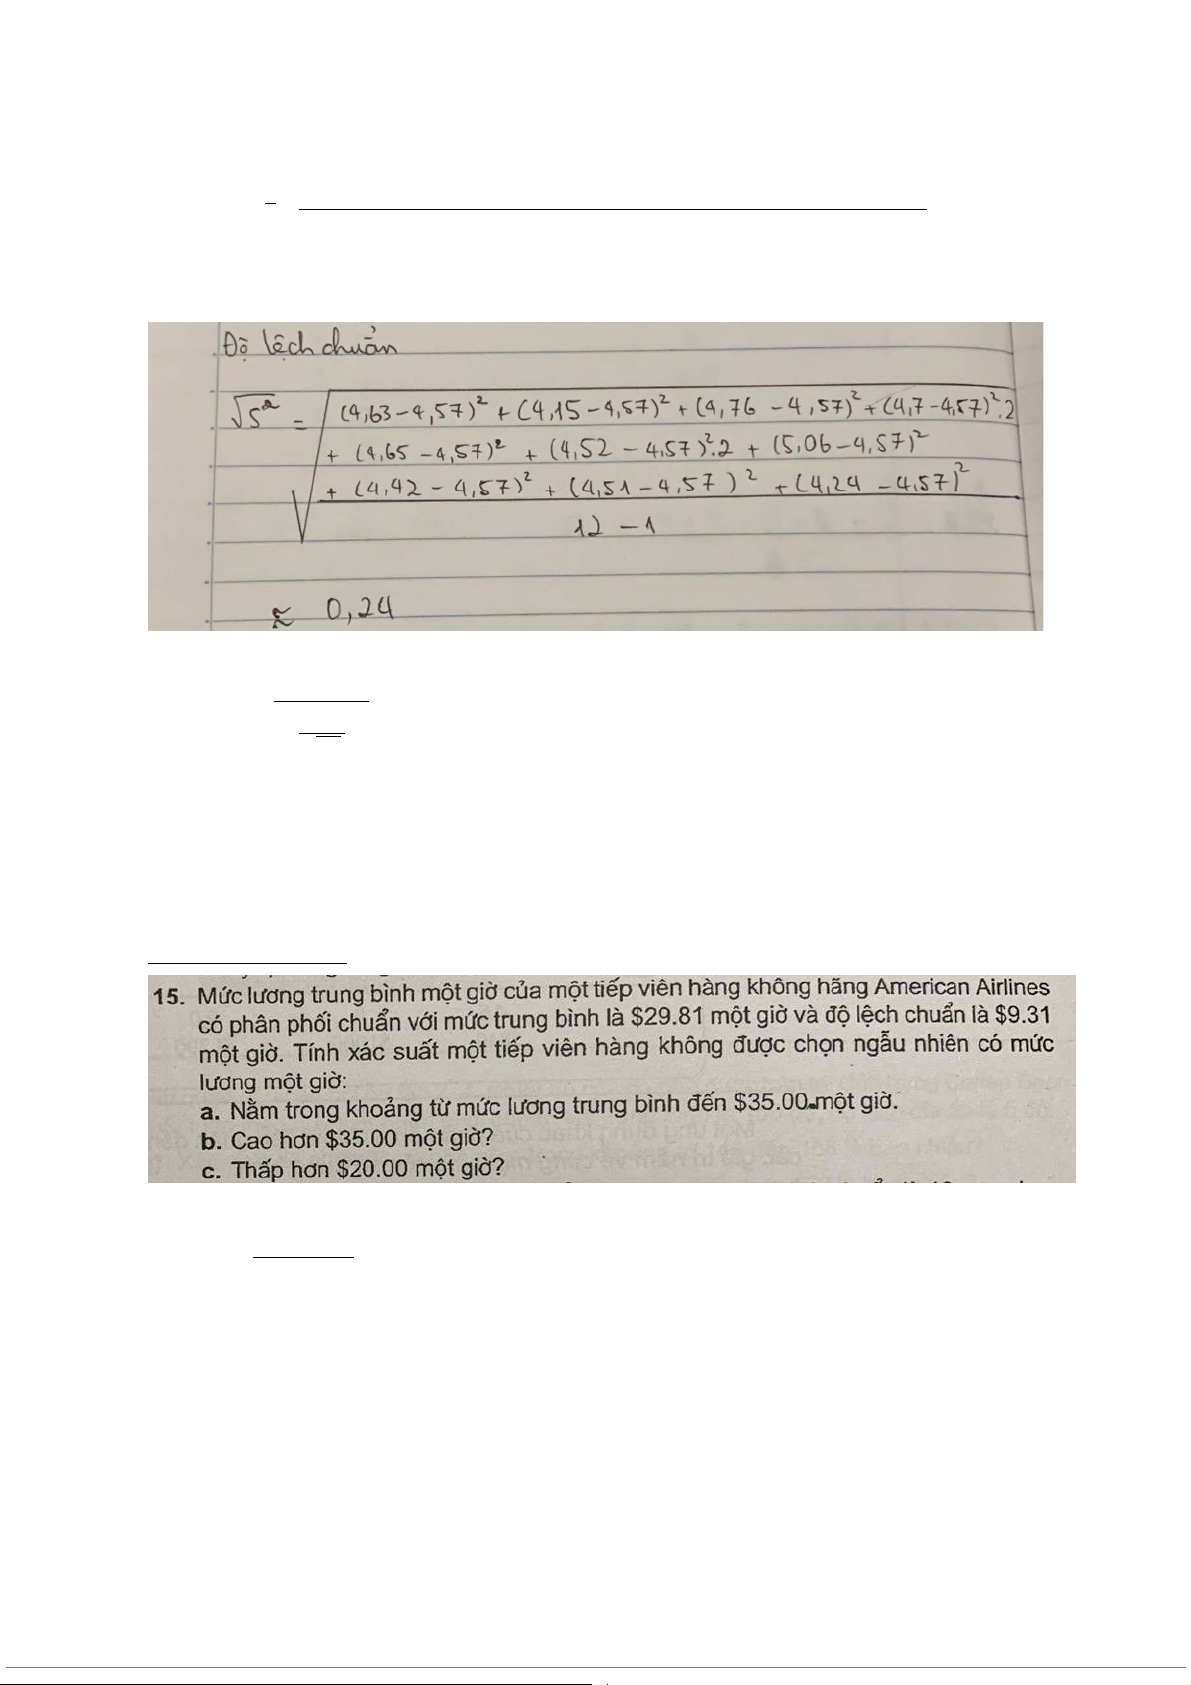 Độ lệch chuẩn
√S² = √(4,63-4,57)² + (4,15-4,57)² + (4,76 - 4,57)² + (4,7-4,57)².2
+ (4,65 - 4,57)² + (4,52 - 4,57)².2 + (5,06-4,57)²
+ (4,42 - 4,57)² + (4,51-4,57)² + (4,24 - 4,57)²
12 - 1
≈ 0,24
15. Mức lương trung bình một giờ của một tiếp viên hàng không hãng American Airlines
có phân phối chuẩn với mức trung bình là $29.81 một giờ và độ lệch chuẩn là $9.31
một giờ. Tính xác suất một tiếp viên hàng không được chọn ngẫu nhiên có mức
lương một giờ:
a. Nằm trong khoảng từ mức lương trung bình đến $35.00 một giờ.
b. Cao hơn $35.00 một giờ?
c. Thấp hơn $20.00 một giờ?